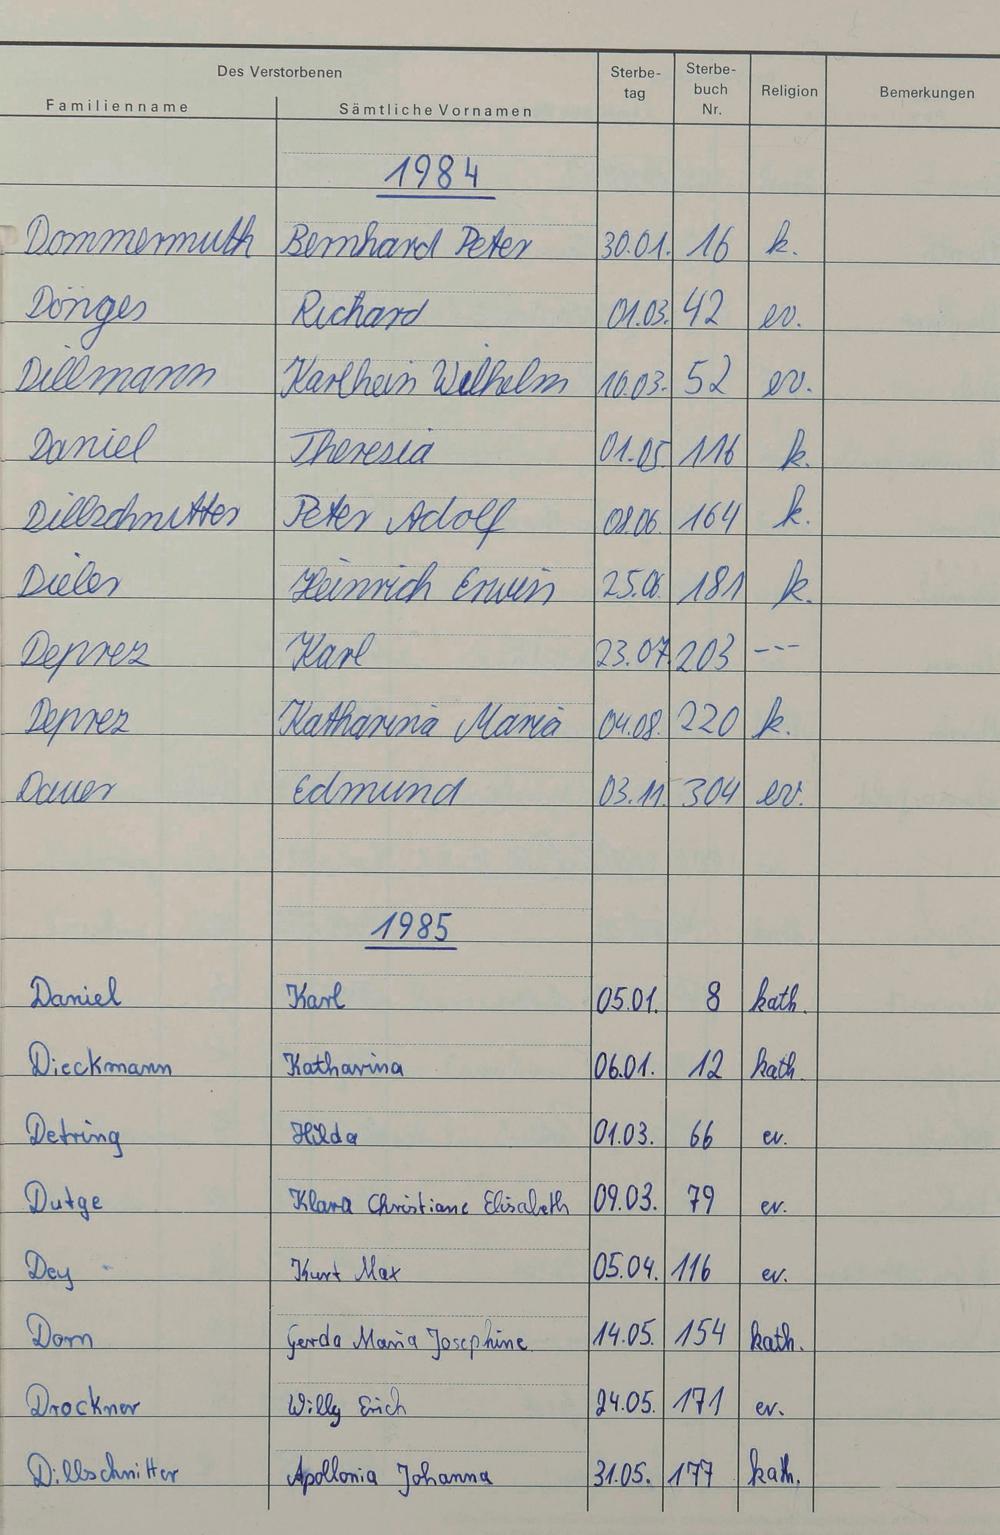 Des Verstorbenen
Familienname Sämtliche Vornamen Sterbe-tag Sterbe-buch Nr. Religion Bemerkungen
1984
Dommermuth Bernhard Peter 30.01. 16 k.
Dönges Richard 01.03. 42 ev.
Dillmann Karlhein Wilhelm 10.03. 52 ev.
Daniel Theresia 01.05. 116 k.
Dillschnitter Peter Adolf 08.06. 164 k.
Dieler Heinrich Erwin 25.06. 181 k.
Deprez Karl 23.07 203 ---
Deprez Katharina Maria 04.08. 220 k.
Dauer Edmund 03.11. 304 ev.
1985
Daniel Karl 05.01. 8 kath.
Dieckmann Katharina 06.01. 12 kath.
Detring Hilda 01.03. 66 ev.
Dutge Klara Christiane Elisabeth 09.03. 79 ev.
Dey Kurt Max 05.04. 116 ev.
Dorn Gerda Maria Josephine 14.05. 154 kath.
Drockner Willy Erich 24.05. 171 ev.
Dillschnitter Apollonia Johanna 31.05. 177 kath.